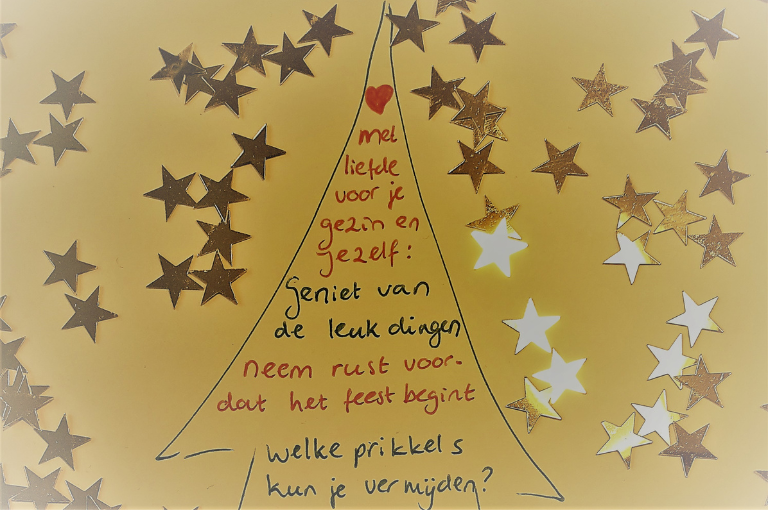 met
liefde
voor je
gezin en
jezelf:
Geniet van
de leuk dingen
neem rust voor-
dat het feest begint
welke prikkels
kun je vermijden?